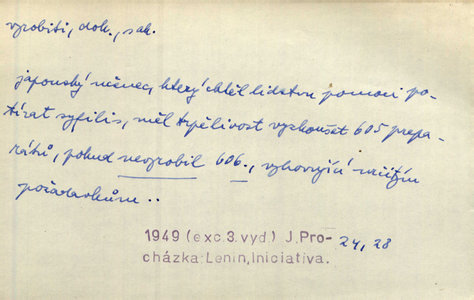 vyrobiti, dok., sak.
japonský učenec, který chtěl lidstvu pomoci po-
tírat syfilis, měl trpělivost vyzkoušet 605 prepa-
rátů, pokud nevyrobil 606., vyhovující určitým
požadavkům..
1949 (exc.3.vyd.) J.Pro- 24, 28
cházka:Lenin,Iniciativa.